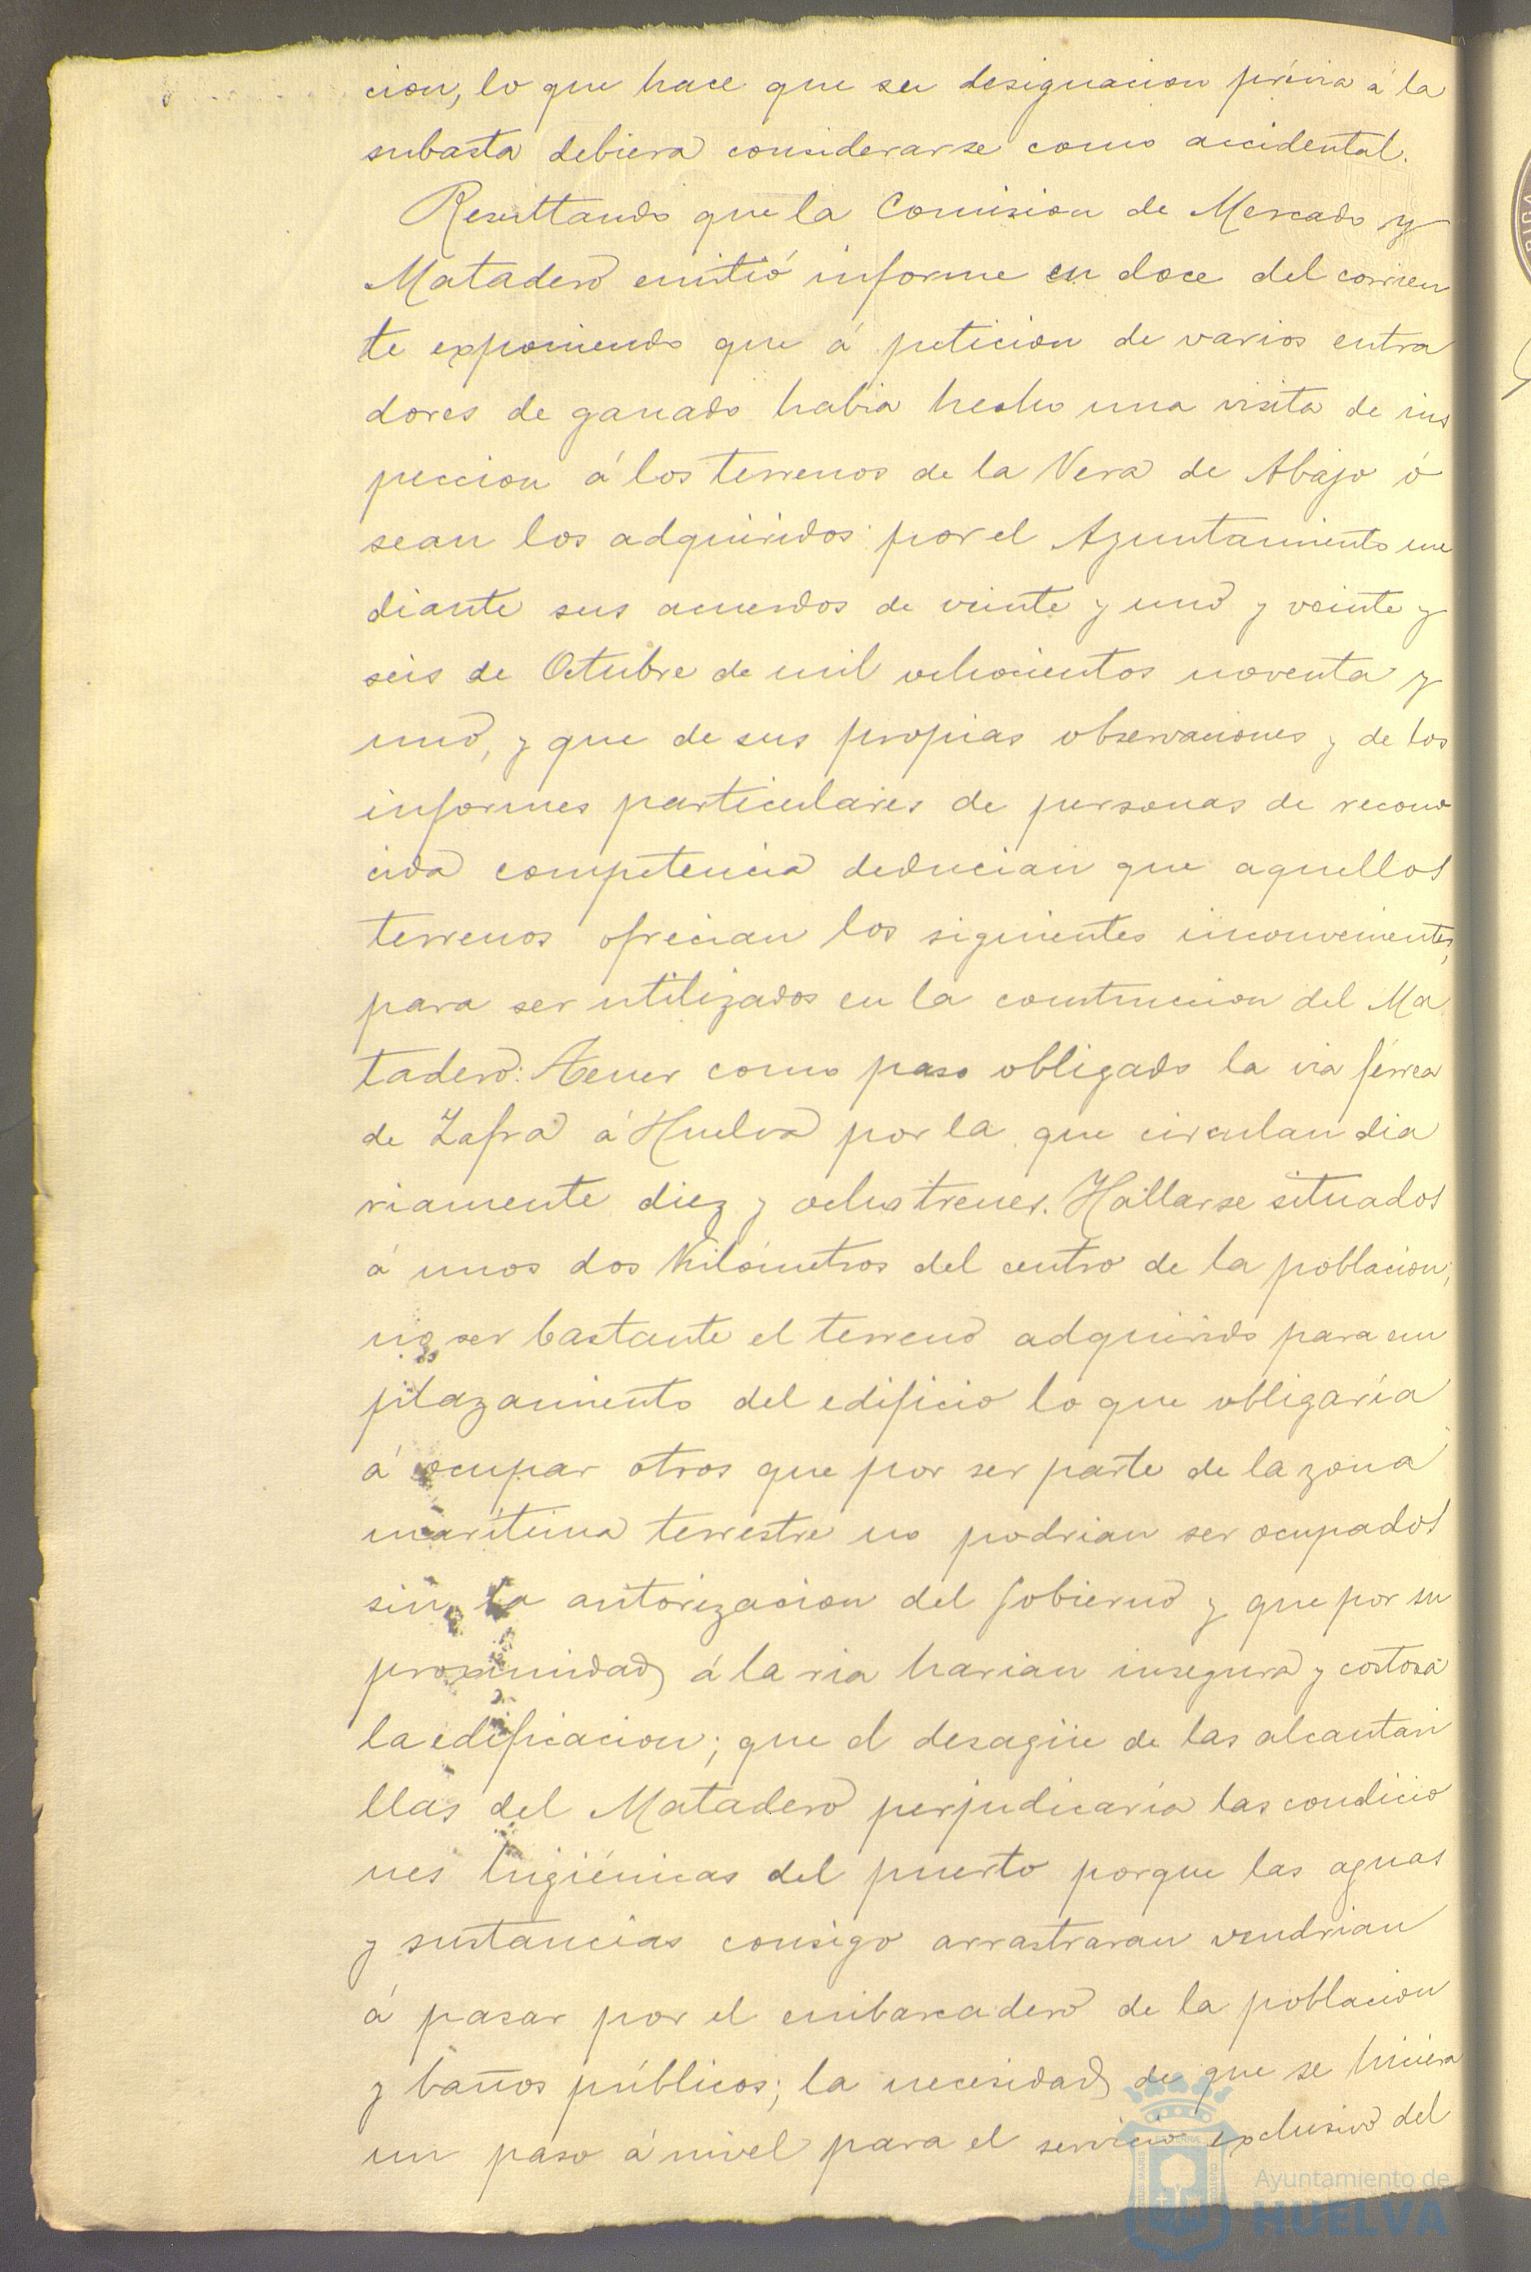 cion, lo que hace que su designacion prévia á la
subasta debiera considerarse como accidental.
Resultando que la Comision de Mercado y
Matadero emitió informe en doce del corrien
te exponiendo que á peticion de varios entra
dores de ganado habia hecho una visita de ins
peccion á los terrenos de la Vera de Abajo ó
sean los adquiridos por el Ayuntamiento me
diante sus acuerdos de veinte y uno y veinte y
seis de Octubre de mil ochocientos noventa y
uno, y que de sus propias observaciones y de los
informes particulares de personas de recono
cida competencia deducian que aquellos
terrenos ofrecian los siguientes inconvenientes,
para ser utilizados en la construccion del Ma
tadero: Tener como paso obligado la via férrea
de Zafra á Huelva por la que circulan dia
riamente diez y ocho trenes. Hallarse situados
á unos dos Kilómetros del centro de la poblacion;
no ser bastante el terreno adquirido para em
plazamiento del edificio lo que obligaría
á ocupar otros que por ser parte de la zona
marítima terrestre no podrian ser ocupados
sin la autorizacion del Gobierno y que por su
proximidad á la ria harian insegura y costosa
la edificacion; que el desagüe de las alcantari
llas del Matadero perjudicaría las condicio
nes higiénicas del puerto porque las aguas
y sustancias consigo arrastraran vendrian
á pasar por el embarcadero de la poblacion
y baños públicos; la necesidad de que se hiciera
un paso á nivel para el servicio exclusivo del
Ayuntamiento de
HUELVA